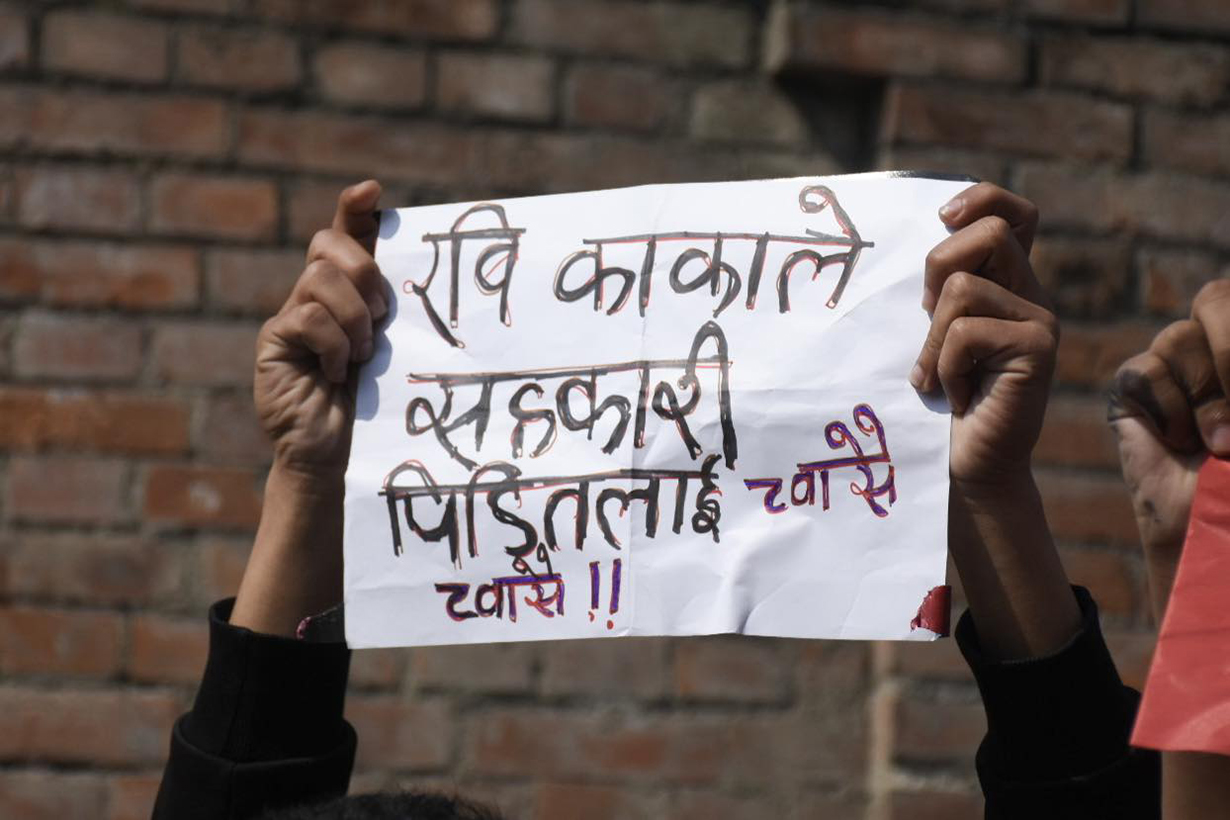 रवि काकाले
सहकारी
पिडितलाई च्वासै
च्वासे !!